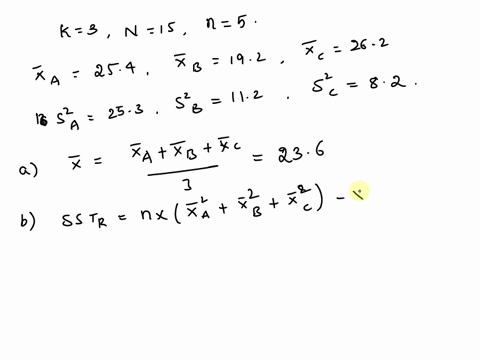 K=3, N=15, n=5.
x̄_A = 25.4, x̄_B = 19.2, x̄_C = 26.2
S²_A = 25.3, S²_B = 11.2, S²_C = 8.2.
a) x̄ = (x̄_A + x̄_B + x̄_C)/3 = 23.6
b) SSTR = n×(x̄²_A + x̄²_B + x̄²_C) -